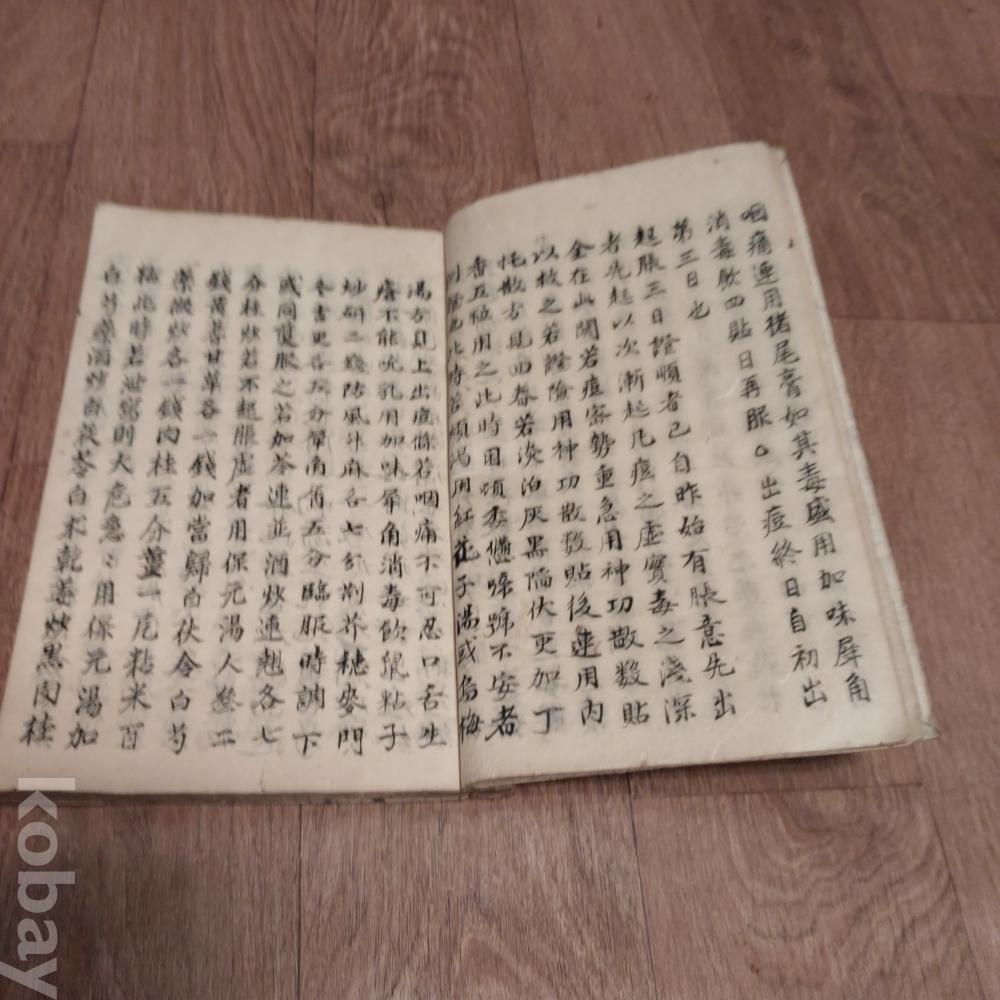 咽痛連用猪尾膏如其毒盛用加味犀角
消毒飮四貼日再服○出痘終日自初出
第三日也
起脹三日證順者已自昨始有脹意先出
者先起以次漸起凡痘之虛實毒之淺深
全在此關若痘密勢重急用神功散數貼
以救之若證險用神功散數貼後連用內
托散方見四春若淡泊灰黑陷伏更加丁
香五粒用之此時因煩悉 啼號不安者
此時若煩渴用紅花子湯或烏梅
湯方見上出痘條若咽痛不可忍口舌生
瘡不能吮乳用加味犀角消毒飮鼠粘子
炒研二錢防風升麻各七分荊芥穗麥門
冬書更各五分犀角屑五分臨服時調下
或同煎服之若加芩連並酒炒連翹各七
分桂炒若不起脹虛者用保元湯人參二
錢黃芪甘草各一錢加當歸白伏令白芍
藥微炒各一錢肉桂五分薑一片粘米百
粒此時若泄瀉則大危急ミ用保元湯加
白芍藥酒炒白茯苓白朮乾薑炒黑肉桂
kobay